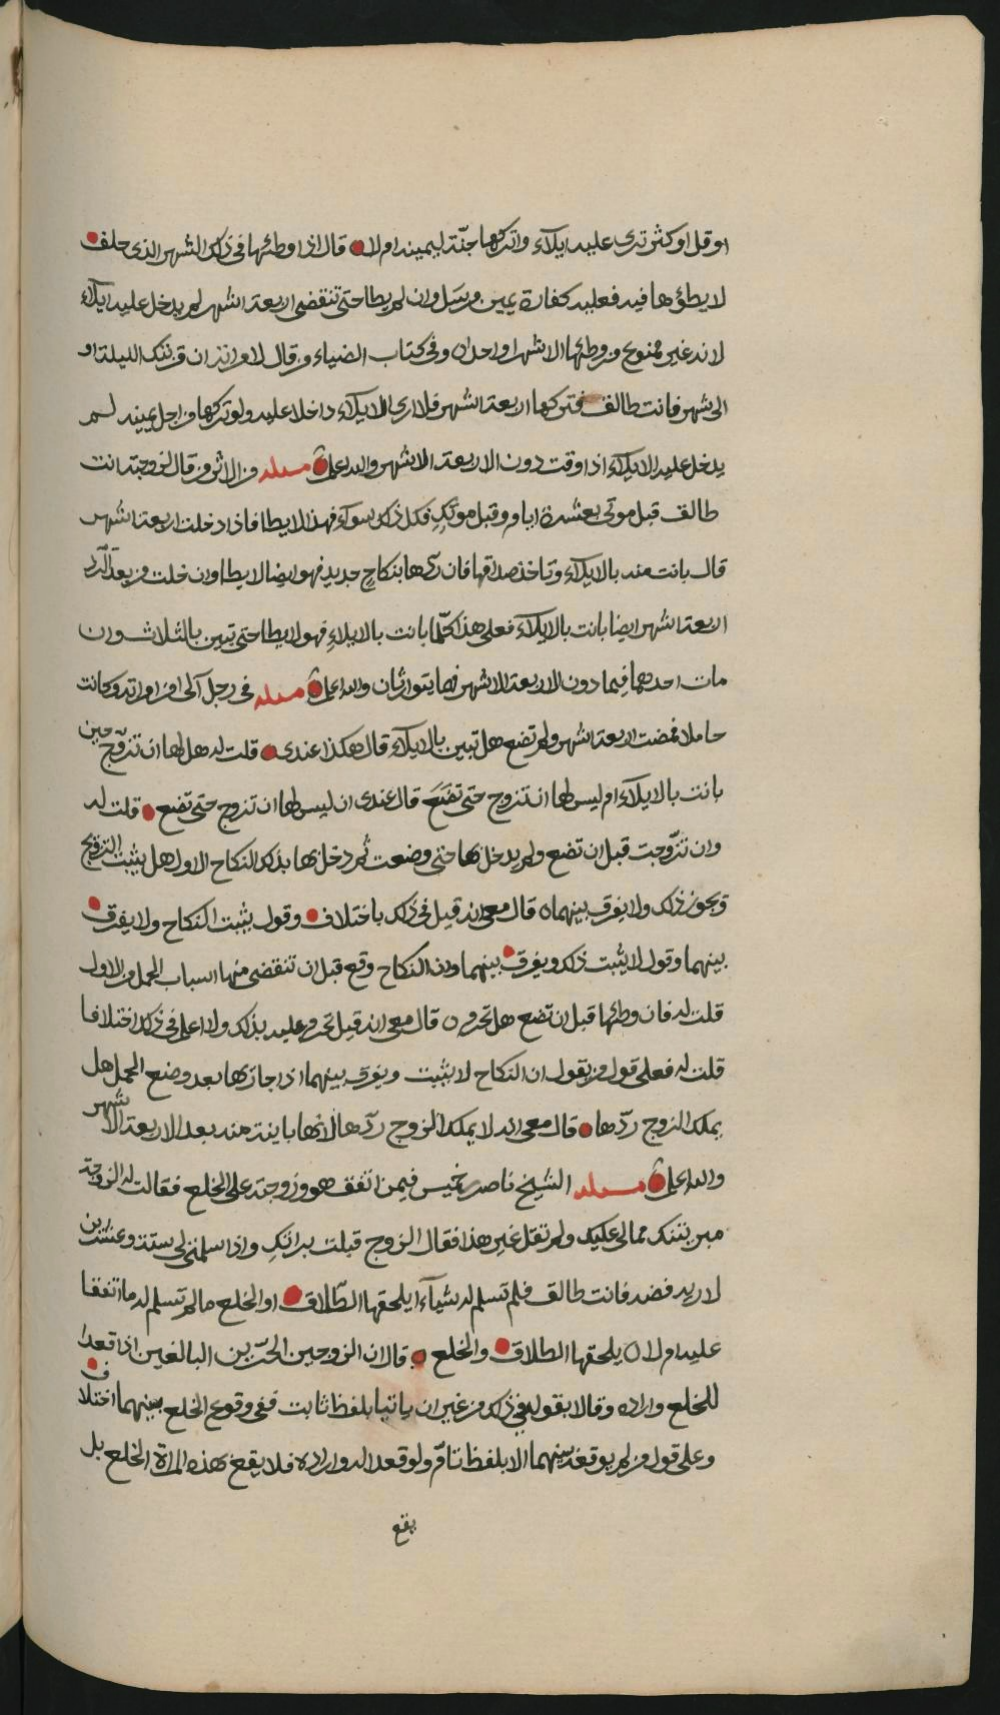 او قل او كثر ترى عليه ايلاء واتركها جنّة ليمينه ام لا قال اذا وطئها فى ذلك الشهر الذى حلف
لا يطؤها فيه فعليه كفارة يمين مرسل وان لم يطا حتى تنقضى اربعة اشهر لم يدخل عليه ايلاء
لانه غير ممنوع من وطئها الا شهرا واحدا ه وفى كتاب الضياء ومن قال لامراته ان قربتك الليلة او
الى شهر فانت طالق فتركها اربعة اشهر فلا ارى الايلاء داخلا عليه ولو تركها من اجل يمينه لم
يدخل عليه الايلاء اذا وقت دون الاربعة الاشهر والله اعلم مسئله من الاثر ومن قال لزوجته انت
طالق قبل موتى بعشرة ايام او قبل موتكِ فكل ذلك سوآء فهذا لا يطا فاذا دخلت اربعة اشهر
قال بانت منه بالايلاء وتاخذ صداقها فان ردّها بنكاحٍ جديد فهو ايضا لا يطا وان خلت من بعد الرد
اربعة اشهر ايضا بانت بالايلاء فعلى هذا كلّما بانت بالايلاءِ فهو لا يطا حتى تبين بالثلاث وان
مات احدهما فيما دون الاربعة الاشهر فهما يتوارثان والله اعلم مسئله فى رجل آلى من امراته وكانت
حاملا فمضت اربعة اشهر ولم تضع هل تبين بالايلاء قال هكذا عندى قلت له هل لها ان تزوّج حين
بانت بالايلاء ام ليس لها ان تزوج حتى تضَعَ قال عندى ان ليس لها ان تزوج حتى تضع قلت له
وان تزوّجت قبل ان تضع ولم يدخل بها حتى وضعت ثم دخل بها بذلك النكاح الاول هل يثبت التزويج
ويجوز ذلك ولا يفرق بينهما ه قال معى انه قيل فى ذلك باختلاف وقول يثبت النكاح ولا يفرق
بينهما وقول لا يثبت ذلك ويفرق بينهما وان النكاح وقع قبل ان تنقضى منها اسباب الحمل من الاول
قلت له فان وطئها قبل ان تضع هل تحرم ه قال معى انه قيل تحرم عليه بذلك ولا اعلم فى ذلك اختلافا
قلت له فعلى قول من يقول ان النكاح لا يثبت ويفرق بينهما اذا جازها بعد وضع الحمل هل
يملك الزوج ردّها قال معى انه لا يملك الزوج ردّها لانها باينة منه بعد الاربعة الاشهر
والله اعلم مسئله الشيخ ناصر بن خميس فيمن اتفق هو وزوجته على الخلع فقالت له الزوجة
مبريتنك ممالى عليك ولم تقل غير هذا فقال الزوج قبلت برانكِ واذا سلمتى لى ستة وعشرين
لارية فضة فانت طالق فلم تسلم له شيآء ايلحقها الطّلاق او الخلع ما لم تسلم له ما اتفقا
عليه ام لا ه يلحقها الطلاق والخلع قال ان الزوجين الحرّين البالغين اذا قعدا
للخلع واراده وقالا بقوله فى ذلك من غير ان ياتيا بلفظ ثابت ففى وقوع الخلع بينهما اختلاف
وعلى قول من لم يوقعه بينهما الا بلفظ تامّ ولو قعدا له واراده فلا يقع بهذه المراة الخلع بل
يقع